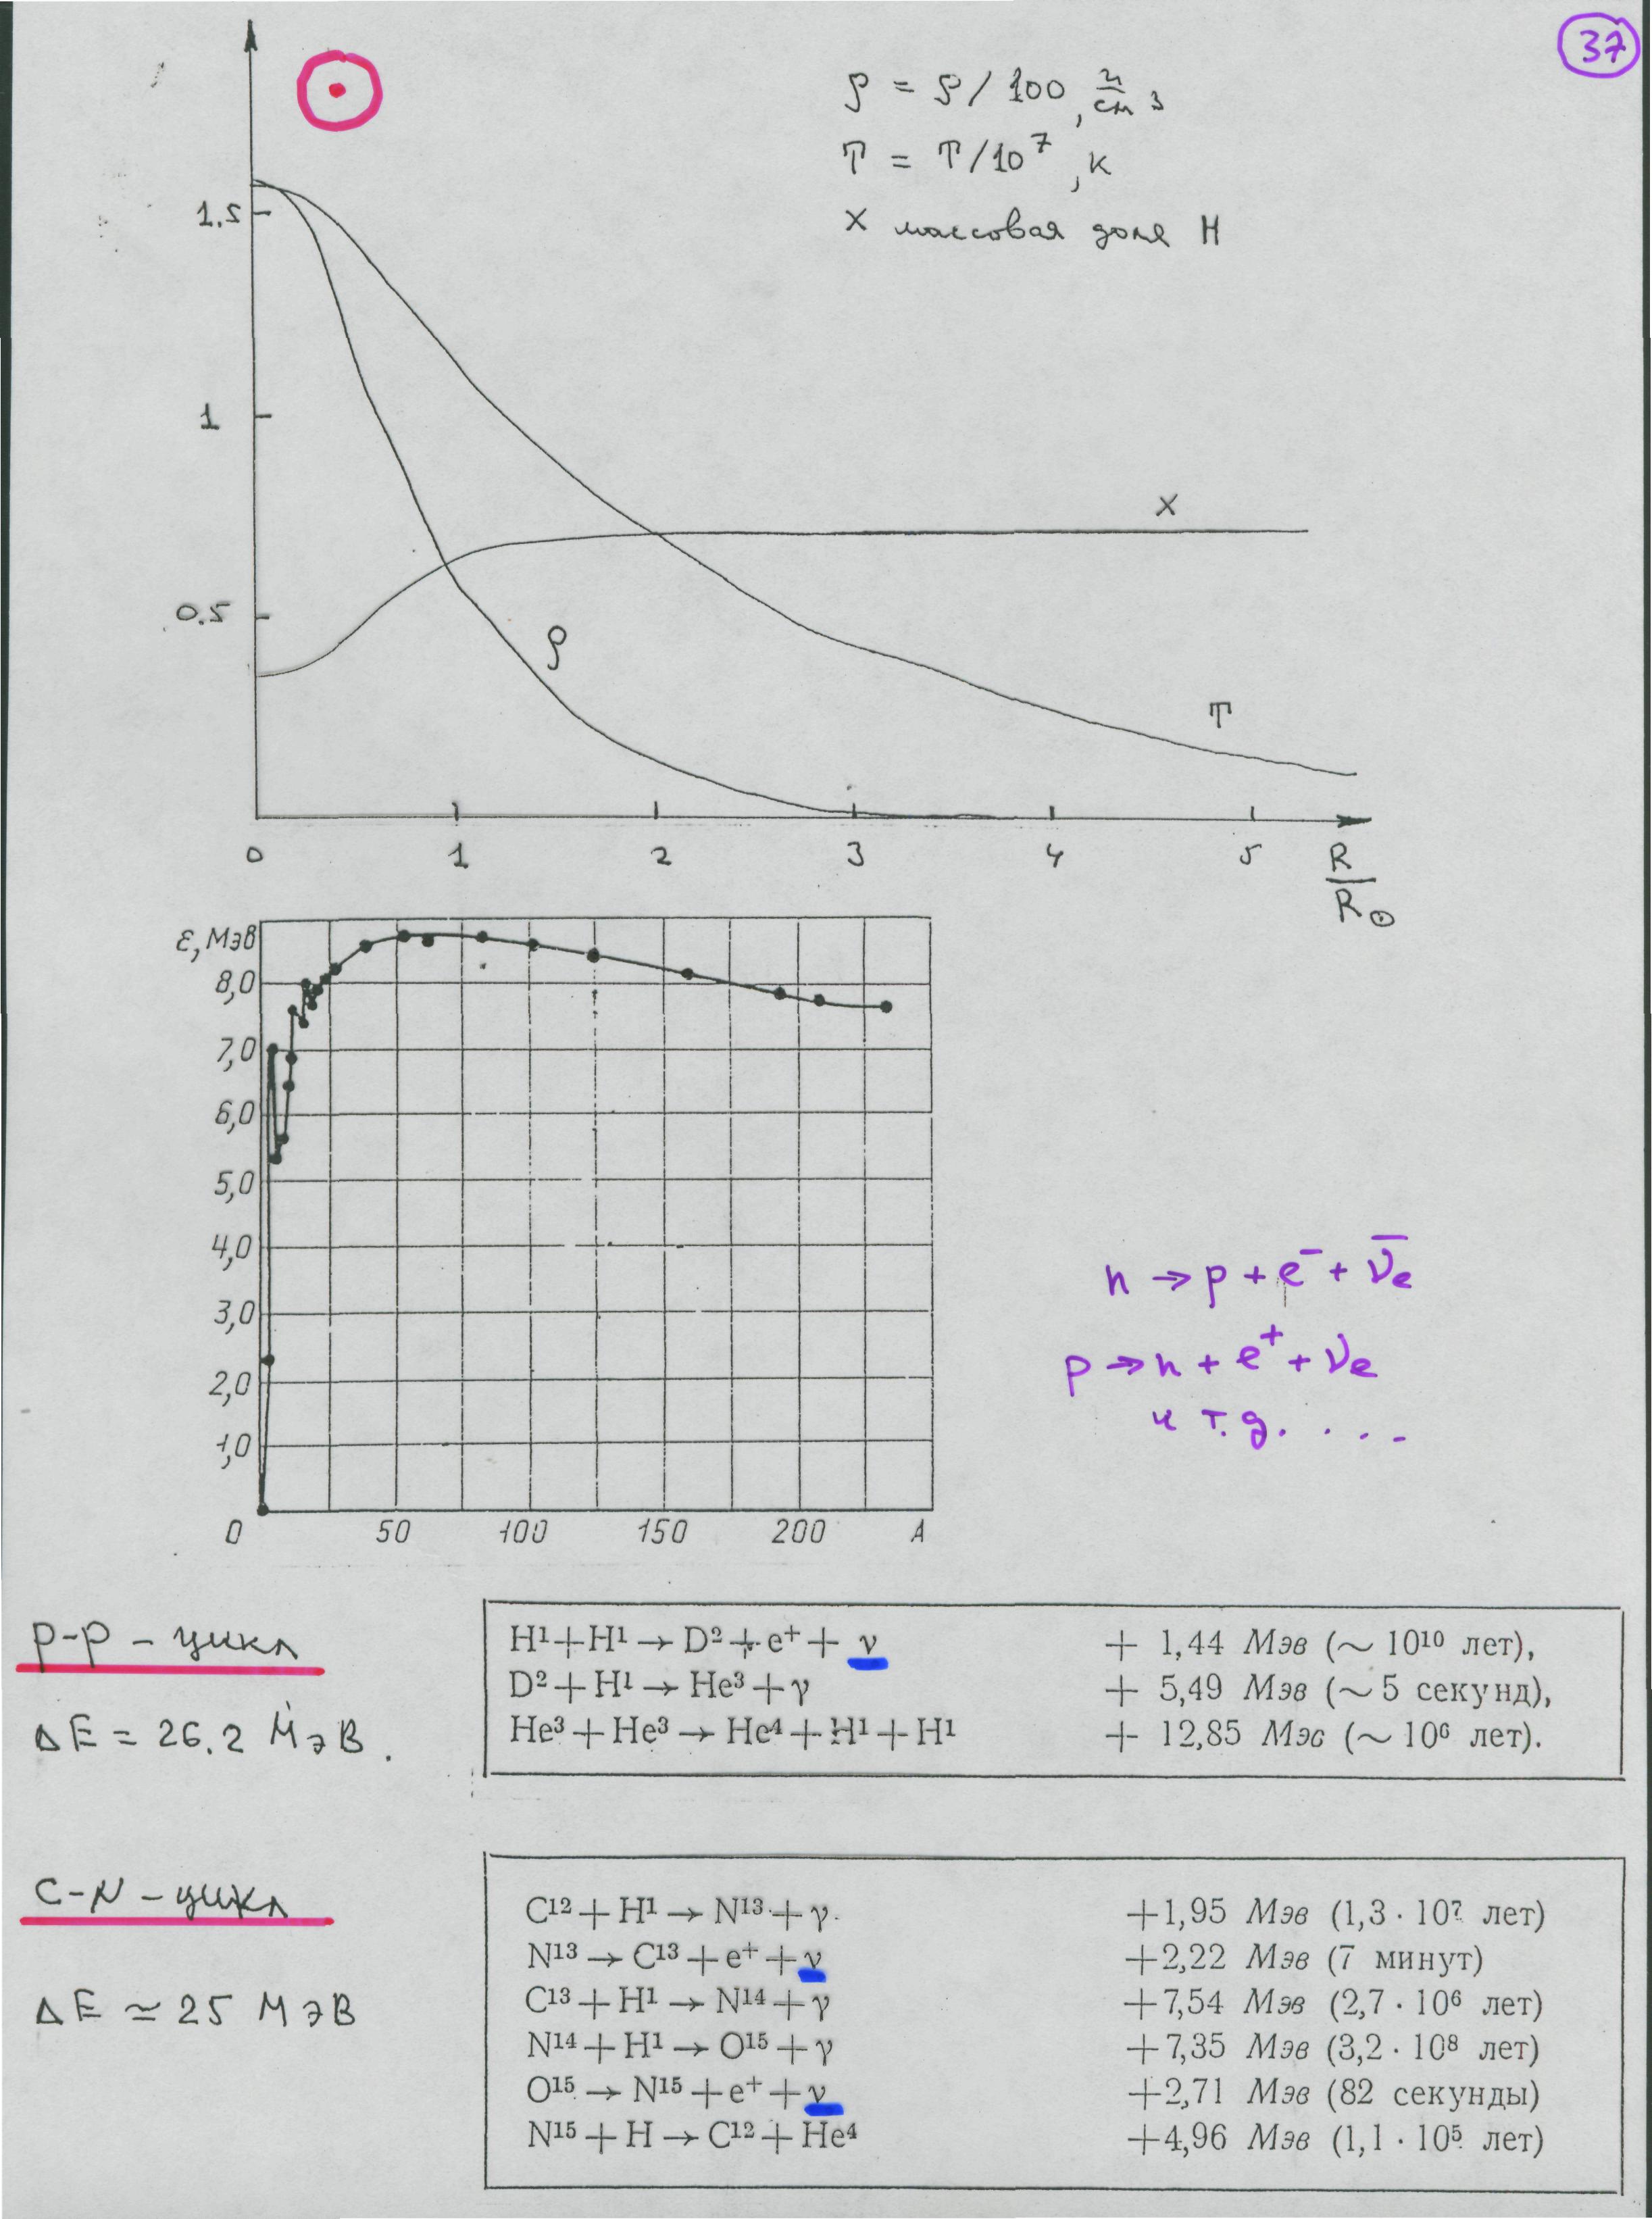 37
ρ = ρ/100, г/см³
T = T/10⁷, K
X массовая доля H
1.5
1
0.5
X
ρ
T
0 1 2 3 4 5 R/R⊙
ε, Мэв
8,0
7,0
6,0
5,0
4,0
3,0
2,0
1,0
0 50 100 150 200 A
n → p + e⁻ + ν̄e
p → n + e⁺ + νe
и т.д. . . . .
p-p - цикл
ΔE = 26.2 МэВ.
H¹ + H¹ → D² + e⁺ + ν + 1,44 Мэв (~ 10¹⁰ лет),
D² + H¹ → He³ + γ + 5,49 Мэв (~ 5 секунд),
He³ + He³ → He⁴ + H¹ + H¹ + 12,85 Мэв (~ 10⁶ лет).
C-N - цикл
ΔE ≃ 25 МэВ
C¹² + H¹ → N¹³ + γ +1,95 Мэв (1,3 · 10⁷ лет)
N¹³ → C¹³ + e⁺ + ν +2,22 Мэв (7 минут)
C¹³ + H¹ → N¹⁴ + γ +7,54 Мэв (2,7 · 10⁶ лет)
N¹⁴ + H¹ → O¹⁵ + γ +7,35 Мэв (3,2 · 10⁸ лет)
O¹⁵ → N¹⁵ + e⁺ + ν +2,71 Мэв (82 секунды)
N¹⁵ + H → C¹² + He⁴ +4,96 Мэв (1,1 · 10⁵ лет)